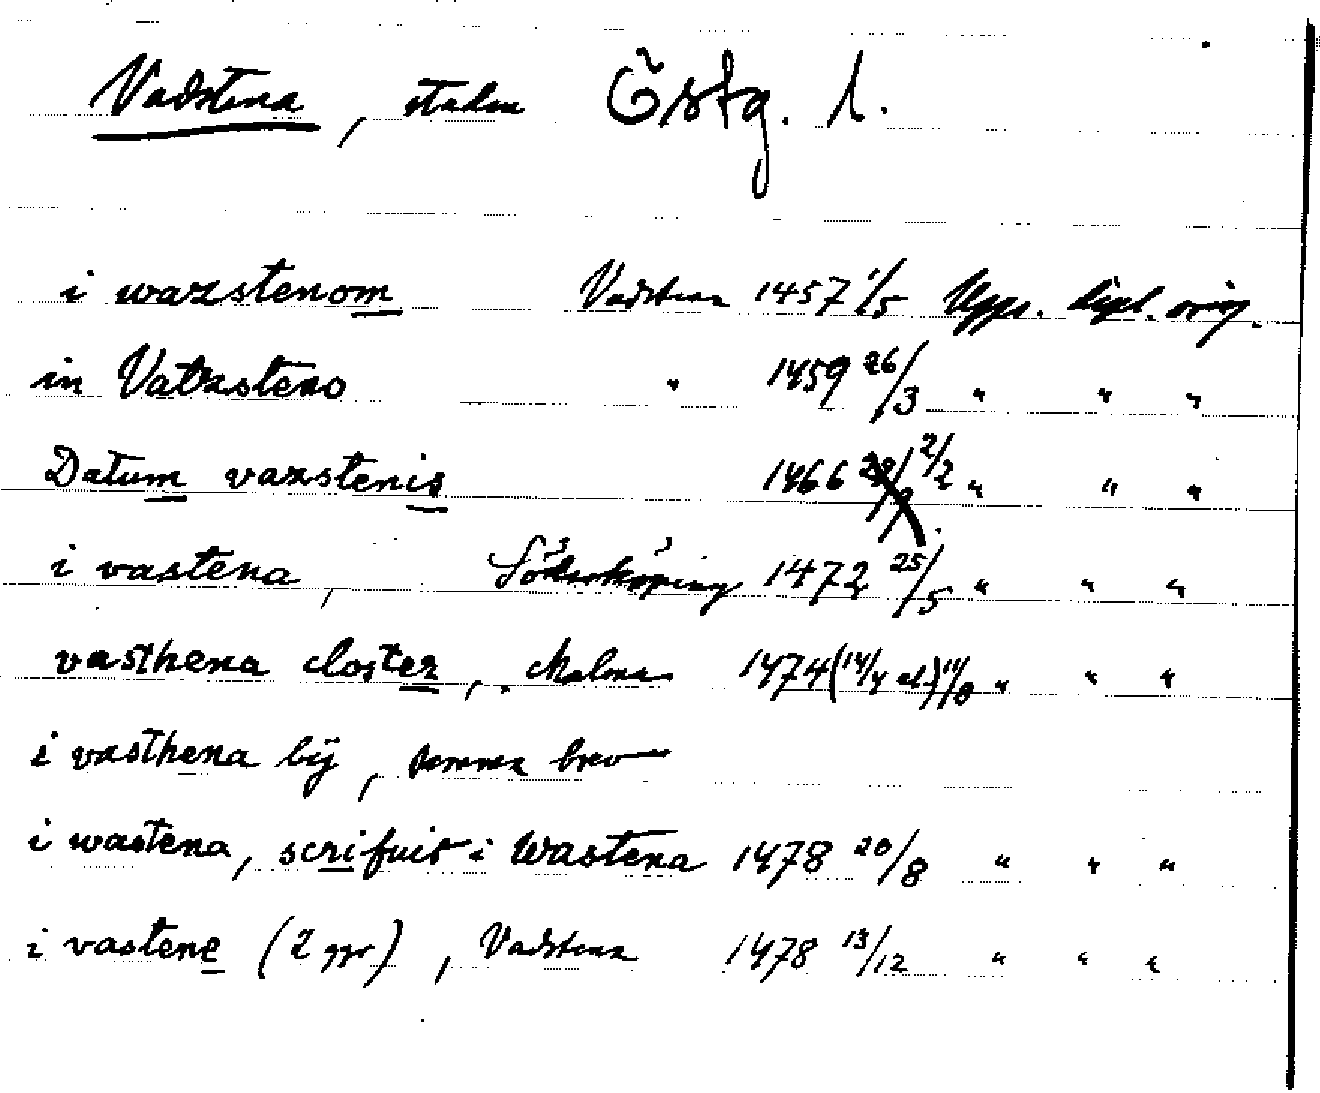 Vadstena, staden Östg. l.
i wazstenom Vadstena 1457 1/5 Upps. dipl. orig.
in Vatzsteno " 1459 26/3 " " "
Datum vazstenis 1466 2/2 " " "
i vastena, Söderköping 1472 25/5 " " "
vasthena closter, 1474 (14/4 el.) 11/8 " " "
i vasthena bÿ, samma brev
i wastena, scrifuit i Wastena 1478 20/8 " " "
i vastene (2 ggr), Vadstena 1478 13/12 " " "